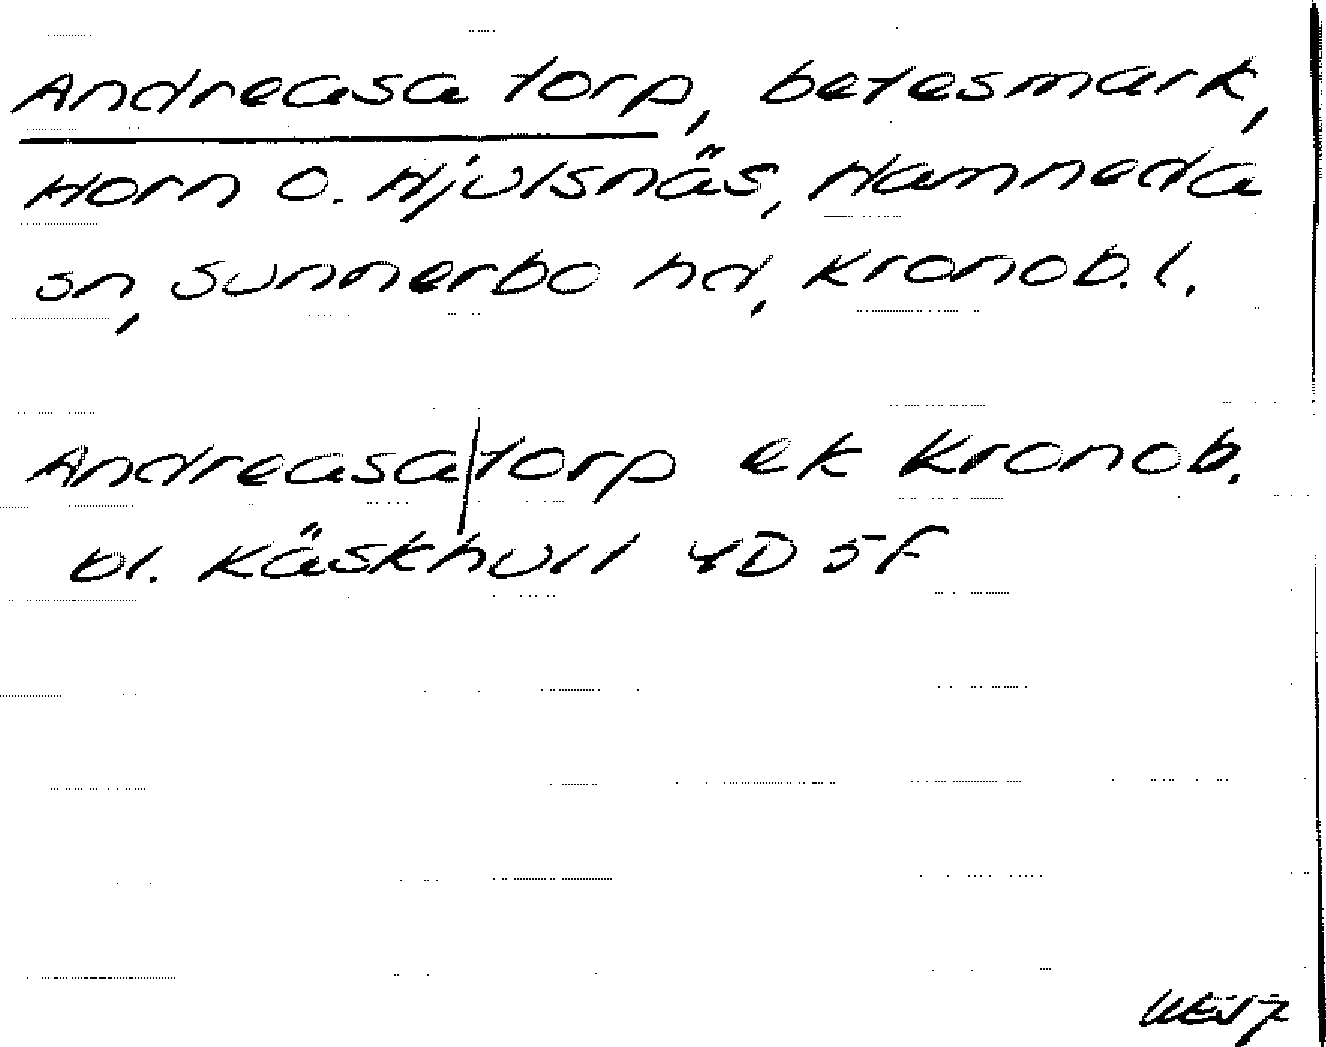 Andreasa torp, betesmark,
Horn o. Hjulsnäs, Hamneda
sn, Sunnerbo hd, Kronob. l.
Andreasa|torp ek Kronob.
bl. Käskhull 4D 5f